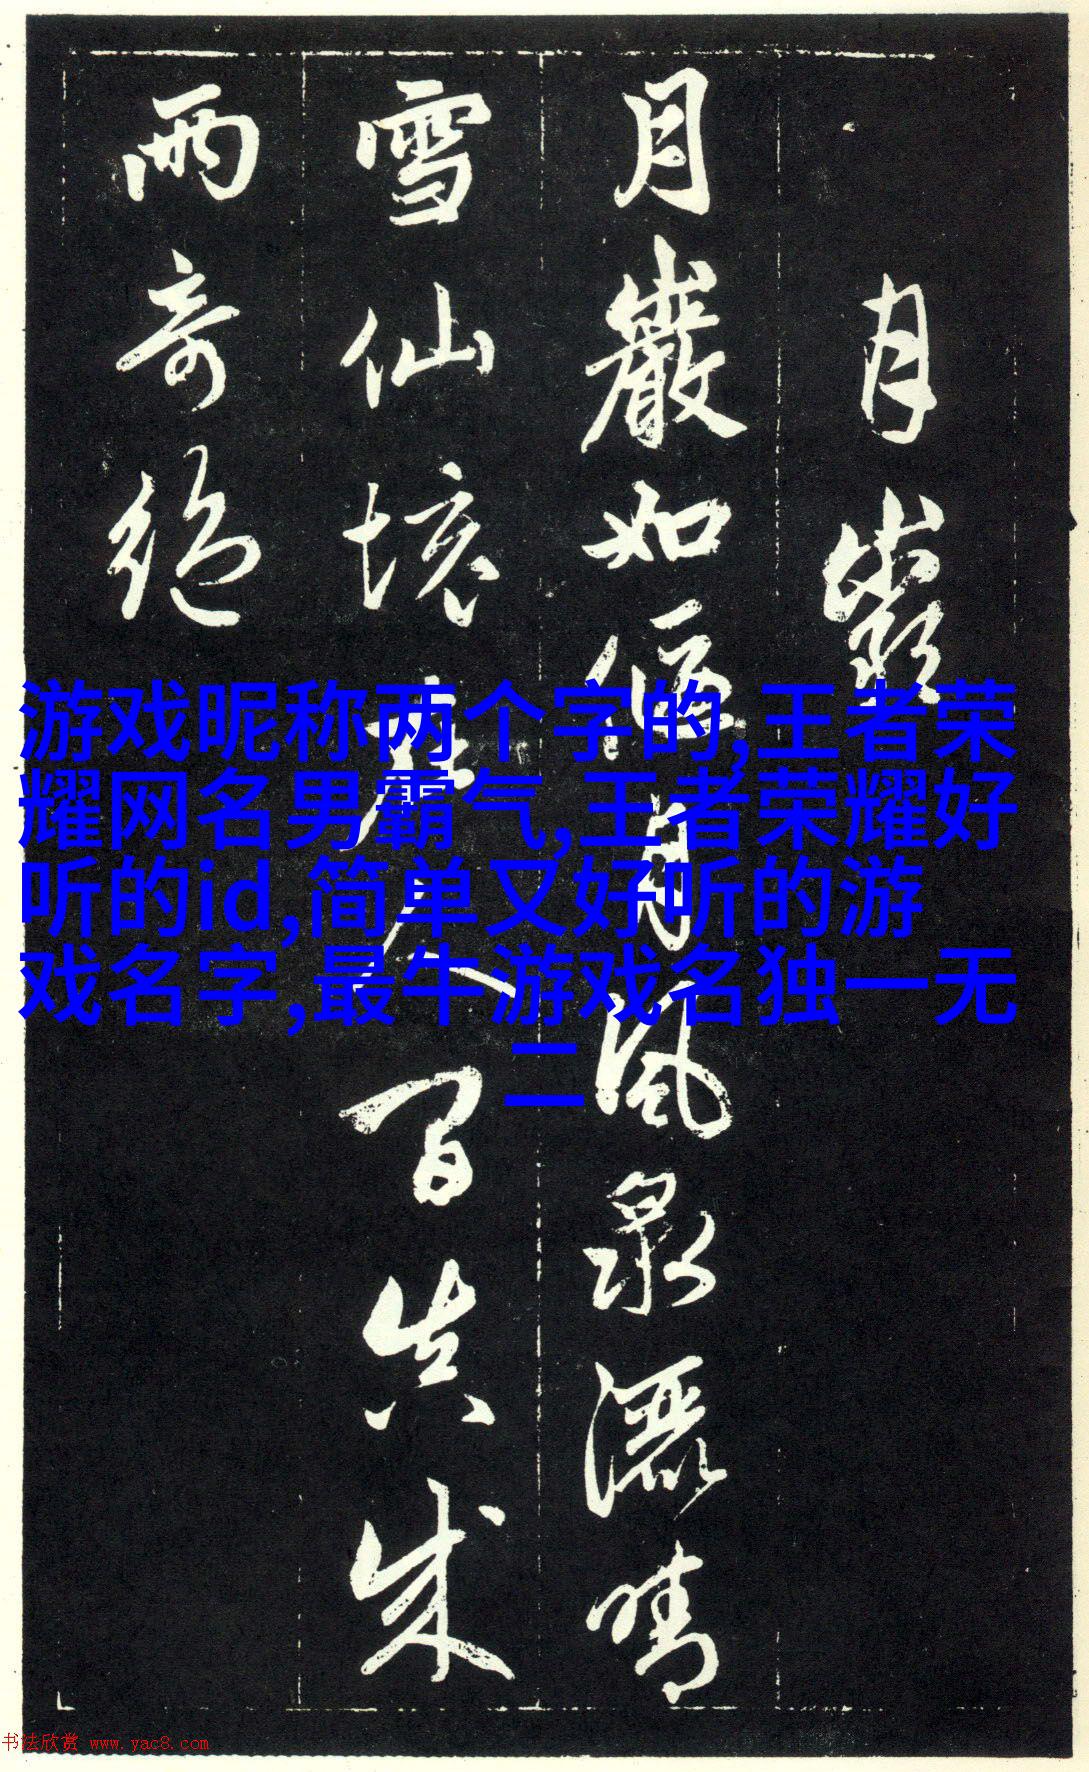 月巖
月巖如偃月風泉灑晴
雪仙境在人間真成
兩奇絕
游戏昵称两个字的,王者荣
耀网名男霸气,王者荣耀好
听的id,简单又好听的游
戏名字,最牛游戏名独一无
二
书法欣赏 www.yac8.com